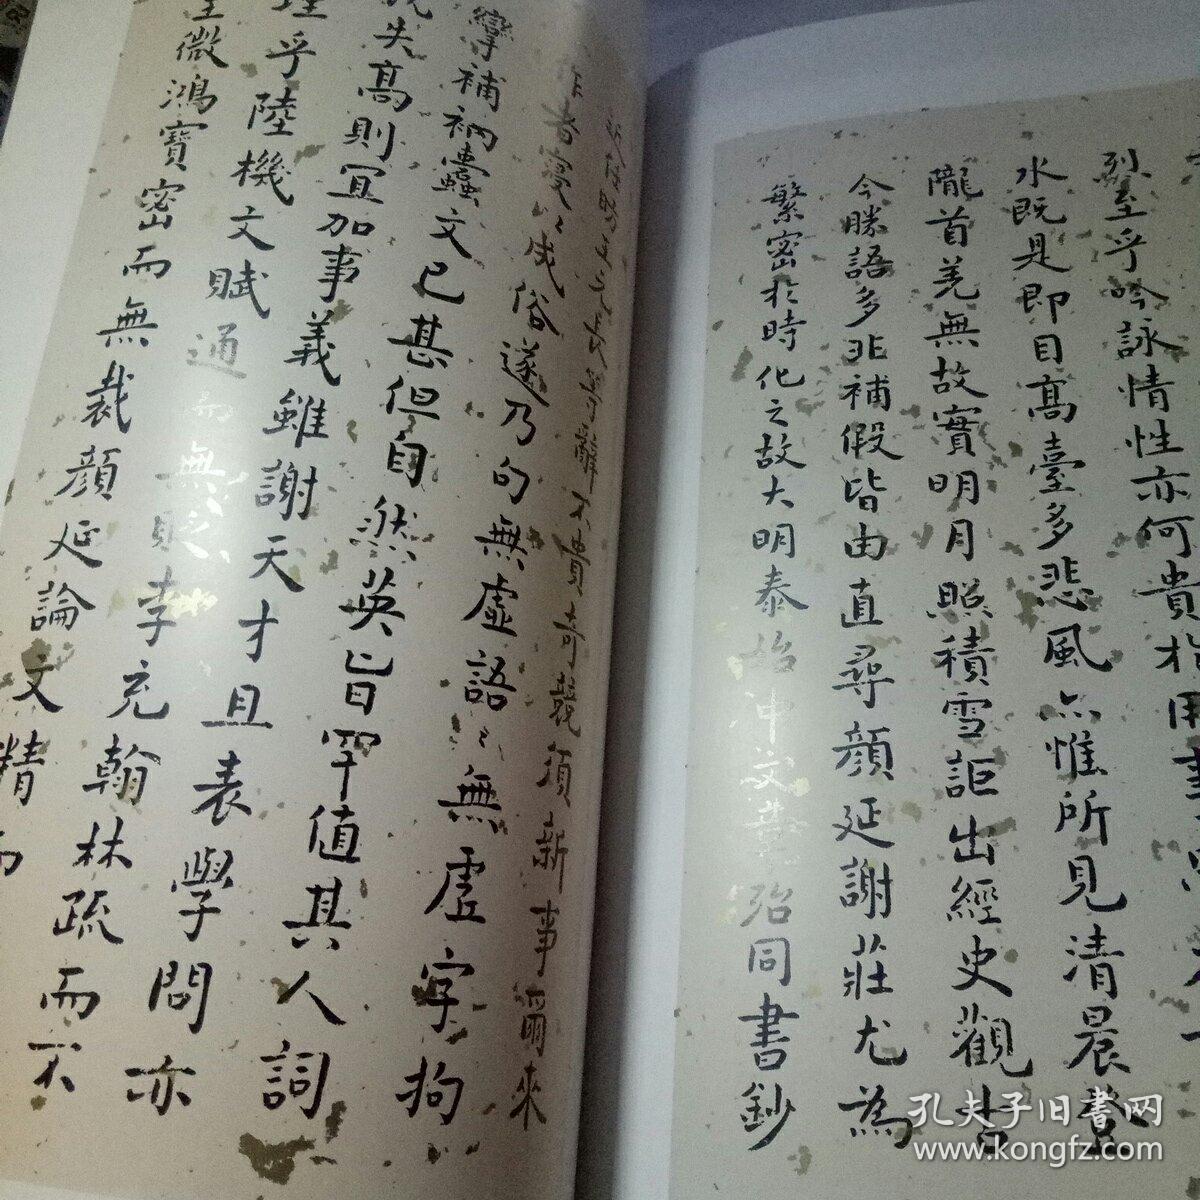 烈至乎吟詠情性亦何貴扵用事
水既是即目高臺多悲風亦惟所見清晨登
隴首羌無故實明月照積雪詎出經史觀古
今勝語多非補假皆由直尋顏延謝莊尤為
繁密扵時化之故大明泰始中文章殆同書鈔
近任昉王元長等辭不貴奇競須新事爾來
作者寖以成俗遂乃句無虛語〻無虛字拘
攣補衲蠹文已甚但自然英旨罕值其人詞
既失高則宜加事義雖謝天才且表學問亦
理乎陸機文賦通而無貶李充翰林疏而不
微鴻寶密而無裁顏延論文精而
孔夫子旧书网
www.kongfz.com